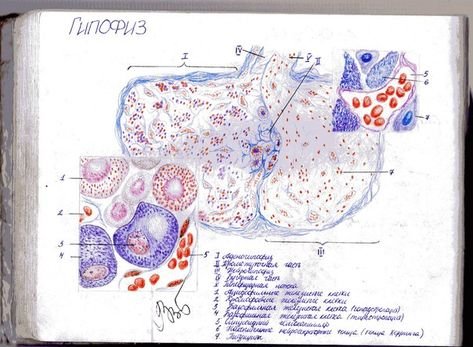 ГИПОФИЗ
I
IV
V
II
5
6
7
1
2
3
4
5
7
III
I Аденогипофиз
II Промежуточная часть
III Нейрогипофиз
IV Туберная часть
V Гипофизарная ножка
1 Ацидофильные железистые клетки
2 Хромофобные железистые клетки
3 Базофильная железистая клетка (гонадотропоцит)
4 Базофильная железистая клетка (тиротропоцит)
5 Синусоидный гемокапилляр
6 Накопительные нейросекреторные тельца (тельца Херринга)
7 Питуицит